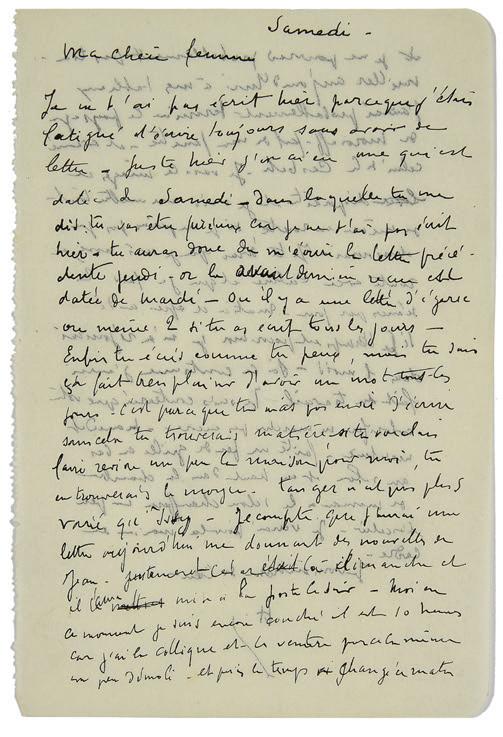 Samedi -
Ma chère femme
Je ne t'ai pas écrit hier, parceque j'étais
fatigué d'écrire toujours sans avoir de
lettre - Juste hier j'en ai eu une qui est
datée de Samedi - Dans laquelle tu me
dis: tu vas être furieux car je ne t'ai pas écrit
hier - tu auras donc dû m'écrire la lettre précé-
dente jeudi - or la avant dernière reçue est
datée de mardi - Ou il y a une lettre d'égarée
ou même 2 si tu as écrit tous les jours -
Enfin tu écris comme tu peux, mais tu sais
ça fait bien plaisir d'avoir un mot tous les
jours c'est parceque tu n'as pas envie d'écrire
sans cela tu trouverais matière si tu voulais
faire revivre un peu la maison pour moi, tu
en trouverais le moyen. Tanger n'est pas plus
varié que Issy - Je compte que j'aurai une
lettre aujourd'hui me donnant des nouvelles de
Jean. justement c'était dimanche et
il l'aura mise à la poste - Moi en
ce moment je suis encore couché il est 10 heures
car j'ai la colique et le ventre par là même
un peu démoli - et puis le temps change ce matin